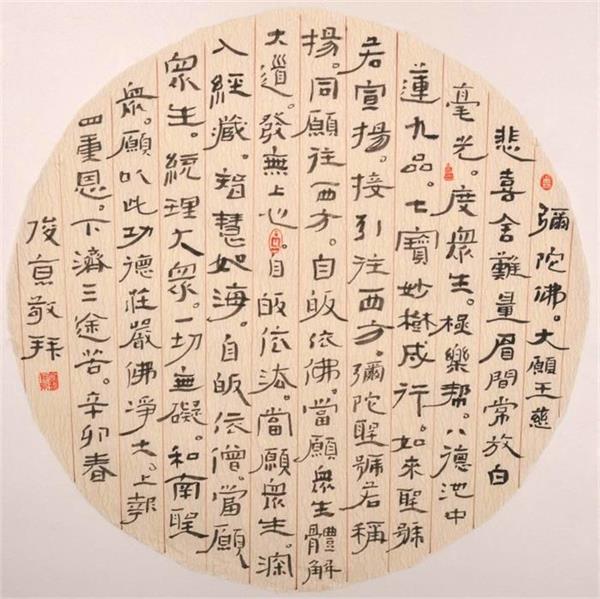 彌陀佛。大願王慈
悲喜舍難量眉間常放白
毫光。度衆生。極樂幫。八德池中
蓮九品。七寶妙樹成行。如來聖號
若宣揚。接引往西方。彌陀聖號若稱
揚。同願往西方。自皈依佛。當願衆生體解
大道。發無上心。自皈依法。當願衆生。深
入經藏。智慧如海。自皈依僧。當願
衆生。統理大衆。一切無礙。和南聖
衆。願以此功德莊嚴佛淨土。上報
四重恩。下濟三途苦。辛卯春
俊敬拜